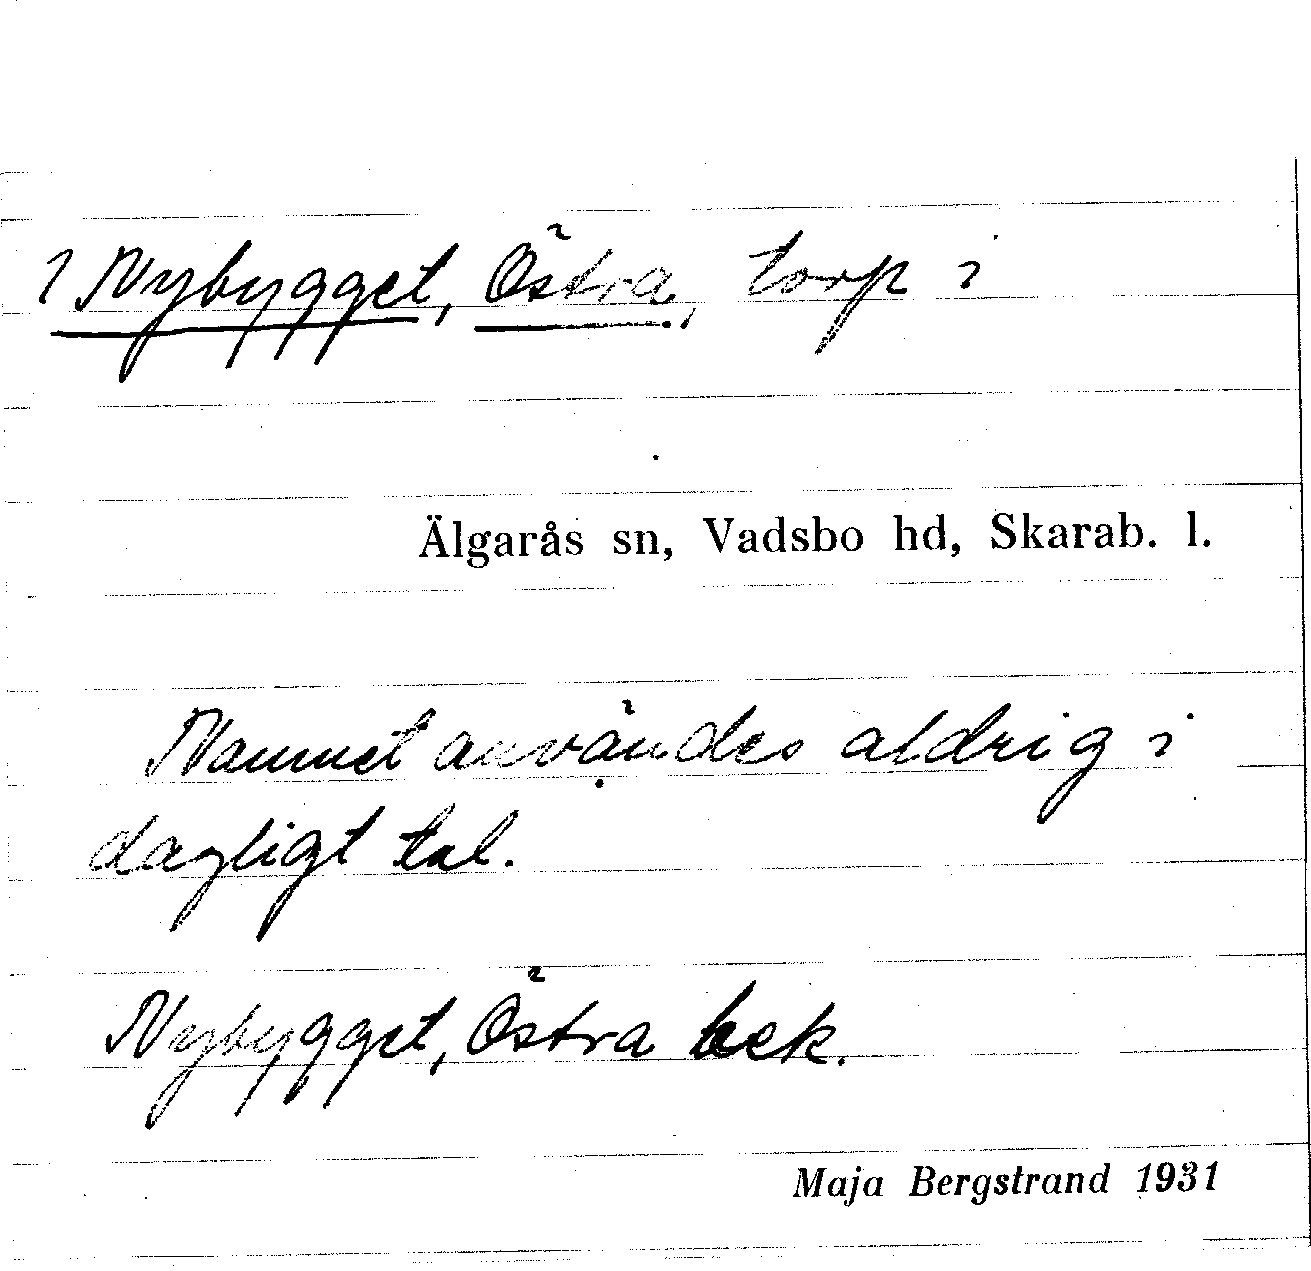 1 Nybygget, Östra, torp i
Älgarås sn, Vadsbo hd, Skarab. l.
Namnet användes aldrig i
dagligt tal.
Nybygget, Östra bek.
Maja Bergstrand 1931